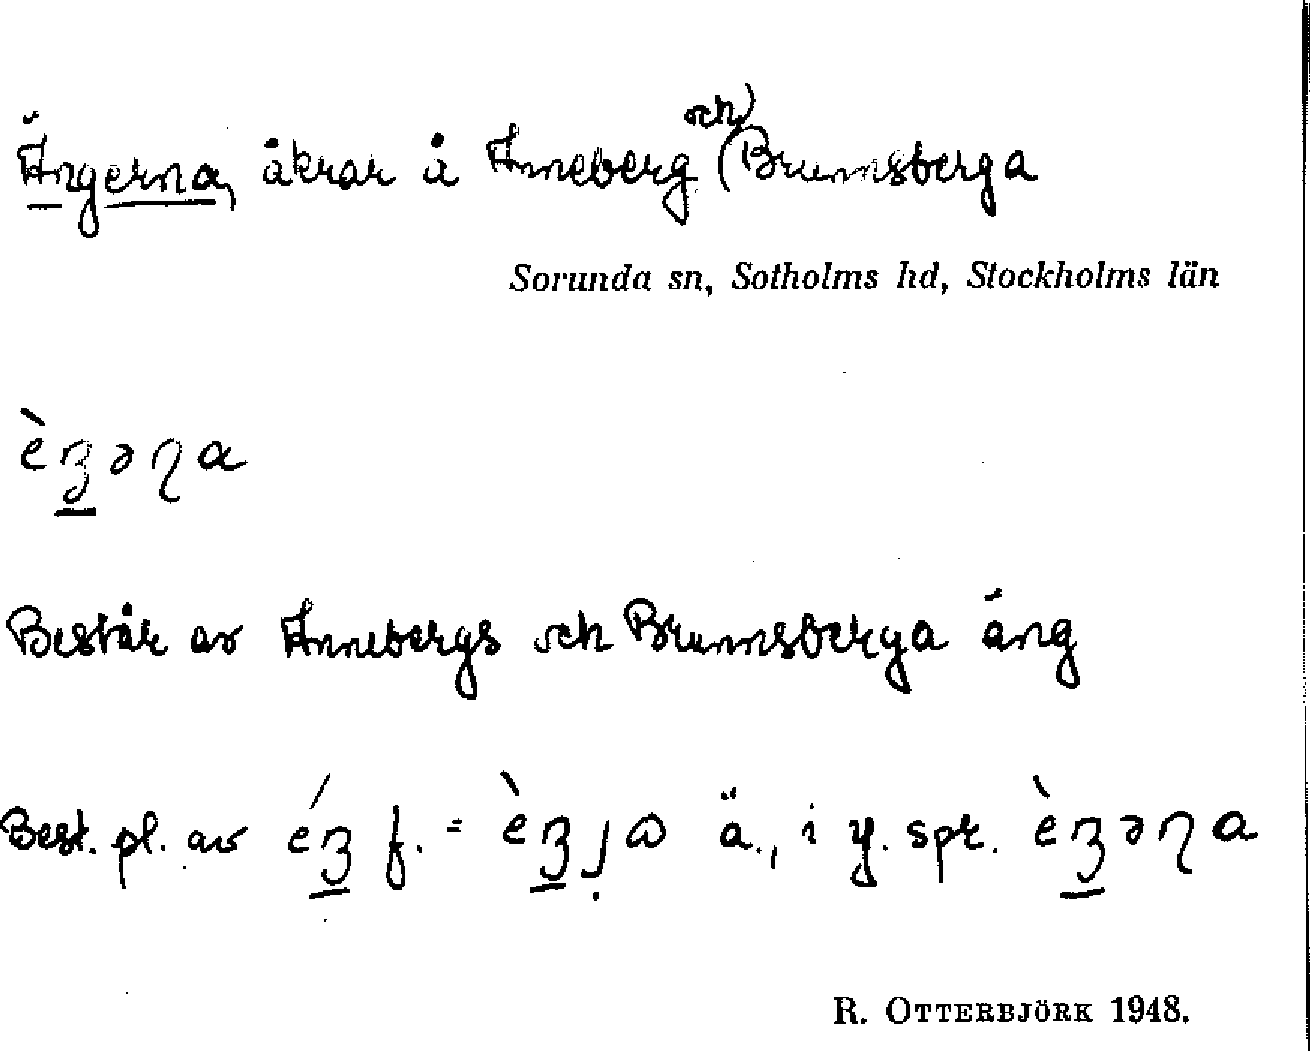 Ängerna, åkrar å Anneberg (och) Brunnsberga
Sorunda sn, Sotholms hd, Stockholms län
Består av Annebergs och Brunnsberga äng
Best. pl. av f. = ä., i y. spr.
R. OTTERBJÖRK 1948.